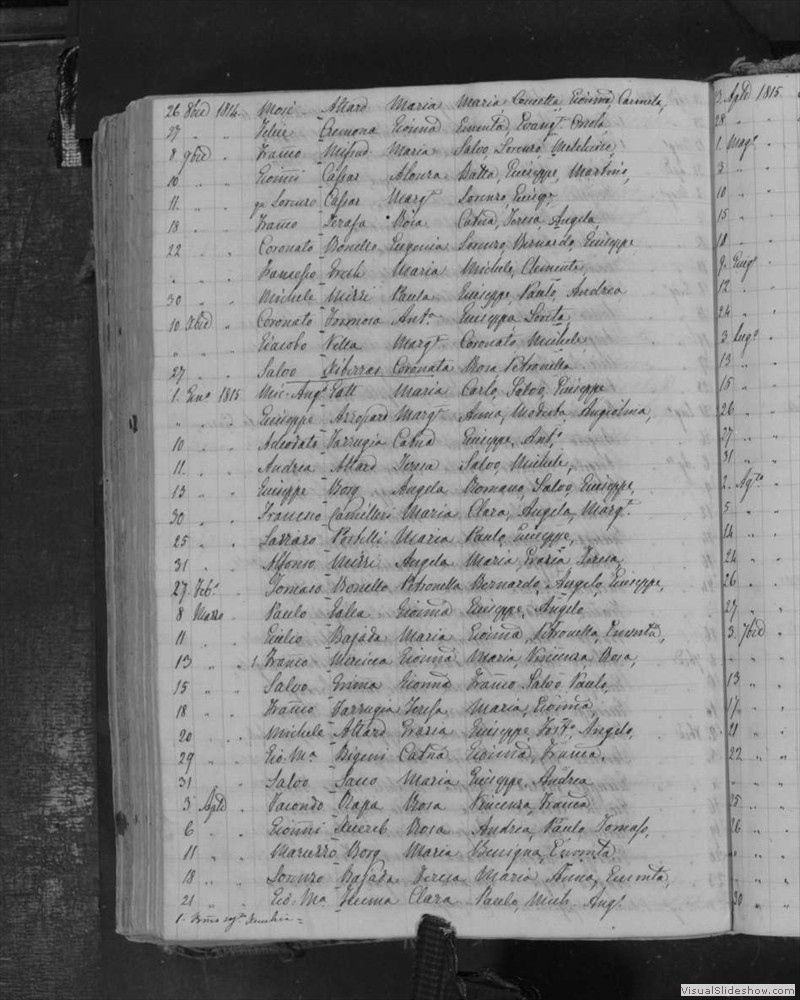 26 8bre 1814. Mosè Attard Maria Maria, Concetta, Gionna, Carmela,
27 " " Felice Cremona Gionna Emmta, Evangta
8 9bre " Franco Mifsud Maria Salvo, Lorenzo, Melchiore,
10 " " Gionni Cassar Batta, Giuseppe, Martino,
11 " " Lorenzo Cassar Margta Lorenzo, Giuse
18 " " Franco Rosa Catna, Teresa, Angela,
22 " " Coronato Bonello Eugenia Lorenzo, Bernardo, Giuseppe
" " " Francesco Maria Michele, Clemente,
30 " " Michele Mizzi Paula Giuseppe, Paulo, Andrea
10 Xbre " Coronato Formosa Anta Giuseppa
" " " Giacobo Vella Margta Coronato, Michele
27 " " Salvo Xiberras Coronata Rosa Petronella
1 Geno 1815 Mic. Ango Galt Maria Carlo, Salvo, Giuseppe
" " " Giuseppe Azzopardi Margta Anna, Modesta, Angiolina,
10 " " Adeodato Farrugia Catna Giuseppe, Anto
11 " " Andrea Attard Teresa Salvo, Michele,
13 " " Giuseppe Borg Angela Romano, Salvo, Giuseppe,
30 " " Francesco Camilleri Maria Clara, Angela, Margta
25 " " Lazzaro Portelli Maria Paulo, Giuseppe,
31 " " Alfonso Mizzi Angela Maria, Grazia, Teresa,
27 Febo " Tomaso Bonello Petronella Bernardo, Angelo, Giuseppe,
8 Marzo " Paulo Galea Gionna Giuseppe, Angelo,
11 " " Giulio Bajada Maria Gionna, Petronella, Emmta,
13 " " 1. Franco Mercieca Gionna Maria, Vincenza, Rosa,
15 " " Salvo Grima Gionna Franco, Salvo, Paulo,
18 " " Franco Farrugia Maria, Gionna,
20 " " Michele Attard Grazia Giuseppe, Angelo,
29 " " Gio. Ma Bigeni Catna Gionna, Franca,
31 " " Salvo Maria Giuseppe, Andrea
3 Aple " Facondo Rapa Rosa Vincenza, Franca
6 " " Gionni Xuereb Rosa Andrea, Paulo, Tomaso,
11 " " Borg Maria Benigna, Emmta
18 " " Lorenzo Bajada Teresa Maria, Anna, Emmta,
21 " " Gio. Ma Clara Paulo, Mich. Ango
3. Aple 1815.
28 " "
1. Mago
3 " "
10 " "
15 " "
18 " "
9. Giugo
12 " "
24 " "
3 Lugo
13 " "
15 " "
26 " "
27 " "
31 " "
2. Agto
5 " "
14 " "
24 " "
26 " "
27 " "
3. 7bre
" " "
13 " "
17 " "
21 " "
22 " "
" " "
25 " "
26 " "
" " "
" " "
30 " "
VisualSlideshow.com